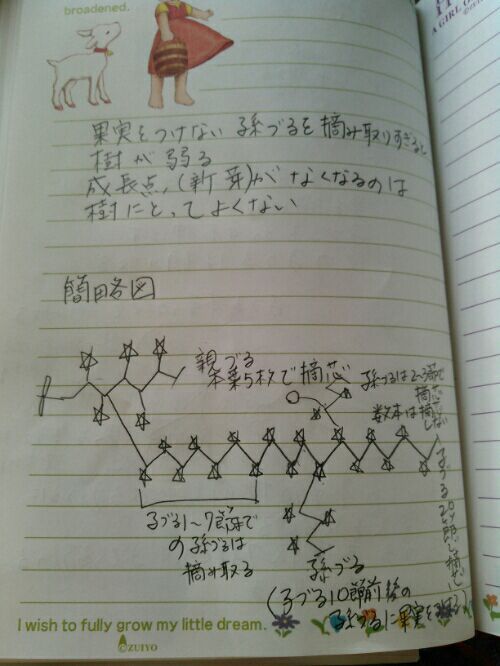 broadened.
果実をつけない孫づるを摘み取りすぎると
樹が弱る
成長点,(新芽)がなくなるのは
樹にとってよくない
簡略図
親づる
本葉5枚で摘芯
孫づるは2~3節で
摘芯
数本は摘芯しない
子づる20節で摘芯
子づる1~7節まで
の孫づるは
摘み取る
孫づる
(子づる10節前後の
孫づるに果実を
I wish to fully grow my little dream.
©ZUIYO
A GIRL